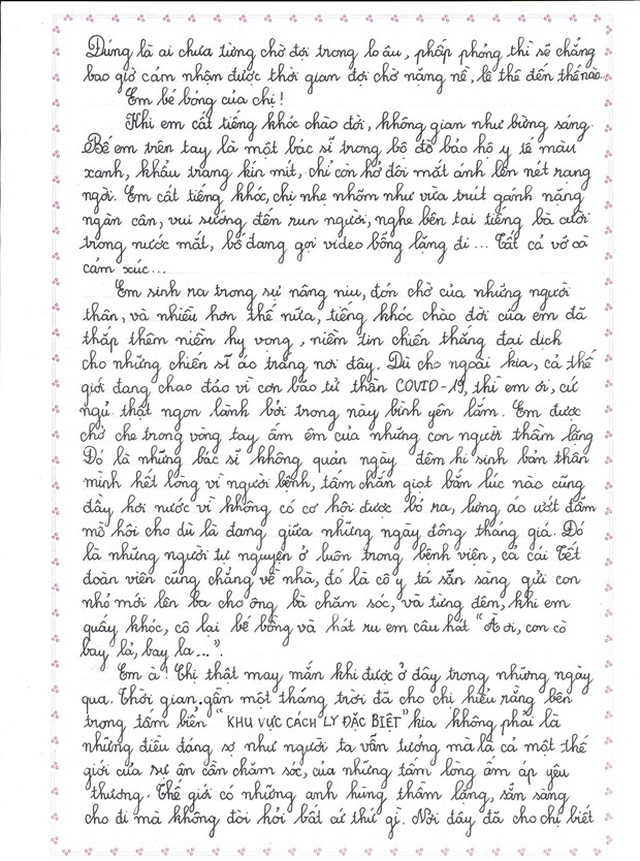 Đúng là ai chưa từng chờ đợi trong lo âu, phấp phỏng thì sẽ chẳng
bao giờ cảm nhận được thời gian đợi chờ nặng nề, lê thê đến thế nào...
Em bé bỏng của chị!
Khi em cất tiếng khóc chào đời, không gian như bừng sáng.
Bế em trên tay là một bác sĩ trong bộ đồ bảo hộ y tế màu
xanh, khẩu trang kín mít, chỉ còn hở đôi mắt ánh lên nét rạng
ngời. Em cất tiếng khóc, chị nhẹ nhõm như vừa trút gánh nặng
ngàn cân, vui sướng đến run người, nghe bên tai tiếng bà cười
trong nước mắt, bố đang gọi video bỗng lặng đi... Tất cả vỡ oà
cảm xúc...
Em sinh ra trong sự nâng niu, đón chờ của những người
thân, và nhiều hơn thế nữa, tiếng khóc chào đời của em đã
thắp thêm niềm hy vọng, niềm tin chiến thắng đại dịch
cho những chiến sĩ áo trắng nơi đây. Dù cho ngoài kia, cả thế
giới đang chao đảo vì cơn bão tử thần COVID-19, thì em ơi, cứ
ngủ thật ngon lành bởi trong này bình yên lắm. Em được
chở che trong vòng tay ấm êm của những con người thầm lặng
Đó là những bác sĩ không quản ngày đêm hi sinh bản thân
mình hết lòng vì người bệnh, tấm chắn giọt bắn lúc nào cũng
đầy hơi nước vì không có cơ hội được bỏ ra, lưng áo ướt đẫm
mồ hôi cho dù là đang giữa những ngày đông tháng giá. Đó
là những người tự nguyện ở luôn trong bệnh viện, cả cái Tết
đoàn viên cũng chẳng về nhà, đó là cô y tá sẵn sàng gửi con
nhỏ mới lên ba cho ông bà chăm sóc, và từng đêm, khi em
quấy khóc, cô lại bế bồng và hát ru em câu hát "À ơi, con cò
bay lả, bay la...".
Em à! Chị thật may mắn khi được ở đây trong những ngày
qua. Thời gian gần một tháng trời đã cho chị hiểu rằng bên
trong tấm biển "KHU VỰC CÁCH LY ĐẶC BIỆT" kia không phải là
những điều đáng sợ như người ta vẫn tưởng mà là cả một thế
giới của sự ân cần chăm sóc, của những tấm lòng ấm áp yêu
thương. Thế giới có những anh hùng thầm lặng, sẵn sàng
cho đi mà không đòi hỏi bất cứ thứ gì. Nơi đây đã cho chị biết